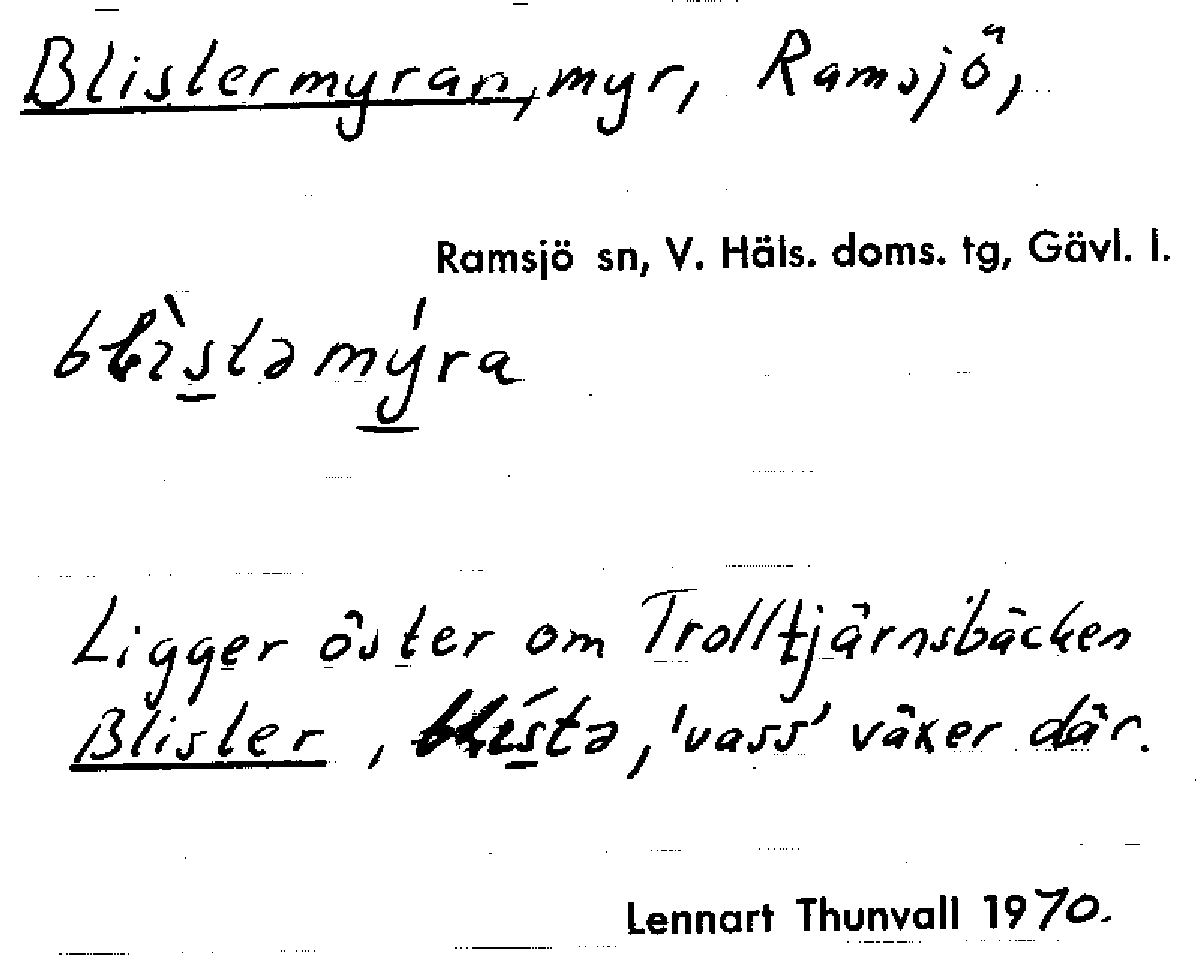 Blistermyran, myr, Ramsjö,
Ramsjö sn, V. Häls. doms. tg, Gävl. l.
Ligger öster om Trolltjärnsbäcken
Blister, 'vass' växer där.
Lennart Thunvall 1970.